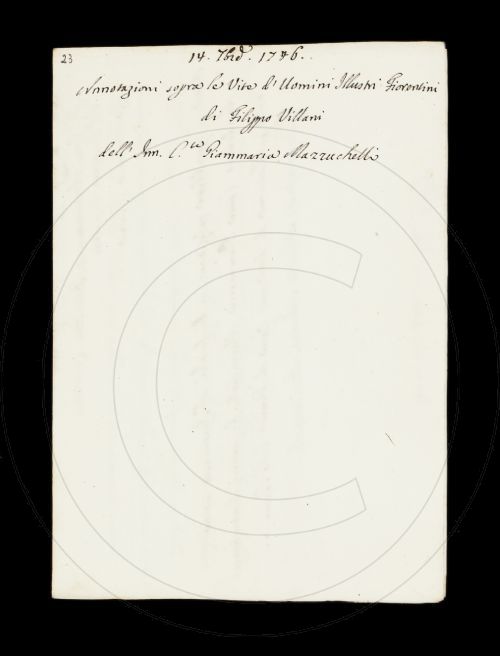 23
14. 7bre. 1746.
Annotazioni sopra le Vite d'Uomini Illustri Fiorentini
di Filippo Villani
dell' Inn. C.te Giammaria Mazzuchelli